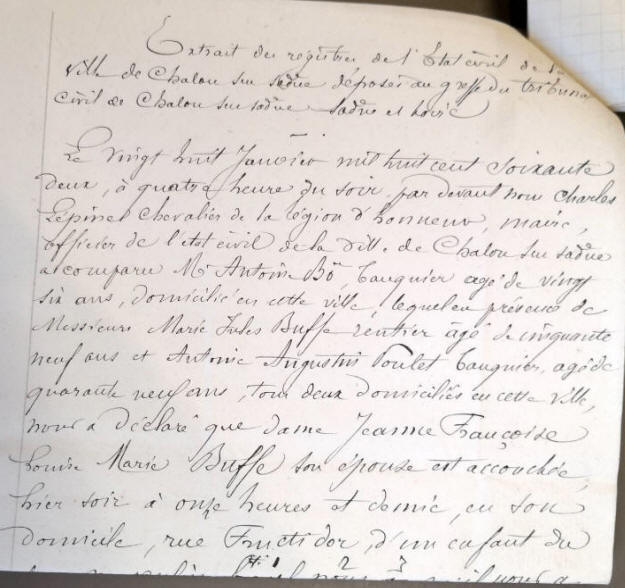 Extrait des registres de l'Etat civil de la
ville de Chalon sur saône déposés au greffe du tribunal
civil de Chalon sur saône Saône et Loire
Le vingt huit Janvier mil huit cent soixante
deux, à quatre heure du soir par devant nous Charles
Lepine Chevalier de la légion d'honneur, maire,
officier de l'etat civil de la ville de Chalon sur saône
a comparu Mr Antoine Bô, banquier agé de vingt
six ans, domicilié en cette ville, lequel en présence de
Messieurs Marie Jules Buffe rentier âgé de cinquante
neuf ans et Antoine Augustin Poulet banquier, agé de
quarante neuf ans, tous deux domiciliés en cette ville,
nous a déclaré que dame Jeanne Françoise
Louise Marie Buffe son épouse est accouchée,
hier soir à onze heures et demie, en son
domicile, rue Fructidor, d'un enfant du